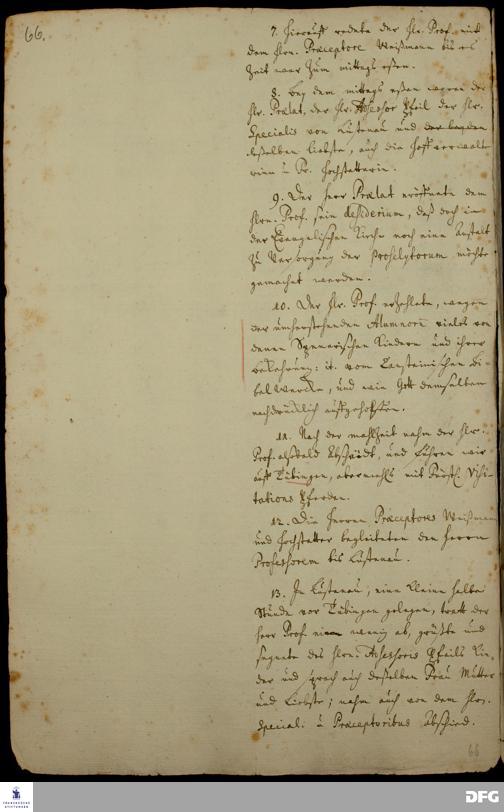 66.
7. Hierauff redete der Hr. Prof. mit
dem Hrn. Præceptore Weißmann bis es
Zeit war zum mittags eßen.
8. bey dem mittags eßen waren der
Hr. Prælat, der Hr. Assessor Pfeil der Hr.
Specialis von Lustenau und der beyden
deßelben Liebste, auch die Hoffverwalte
rinn u Fr. Hochstetterin.
9. Der Herr Prælat eröffnete dem
Hrn. Prof. sein desiderium, daß doch in
der Evangelischen Kirche noch eine Anstalt
zu Versorgung der Proselytorum möchte
gemachet werden.
10. Der Hr. Prof. erzehlete, wegen
der umherstehenden Alumnorum vieles von
denen Kindern und ihrer
bekehrung: it. vom Cansteinischen Bi-
bel Wercke, und wie Gott demselben
nachdrücklich auffgeholffen.
11. Nach der mahlzeit nahm der Hr.
Prof. alsbald Abschied, und fuhren wir
auff Tübingen, abermahls mit Fürstl. Visi-
tations Pferden.
12. Die Herren Præceptores Weißman
und Hochstetter begleiteten den Herrn
Professorem bis Lustenau.
13. In Lustenau, eine kleine halbe
Stunde vor Tübingen gelegen, tratt der
Herr Prof. ein wenig ab, grüßte und
segnete des Hrn. Assessoris Pfeils Kin-
der und sprach auch deßelben Frau Mutter
und Liebste; nahm auch von dem Hrn.
Speciali u Præceptoribus Abschied.
66
FRANCKESCHE
STIFTUNGEN
DFG